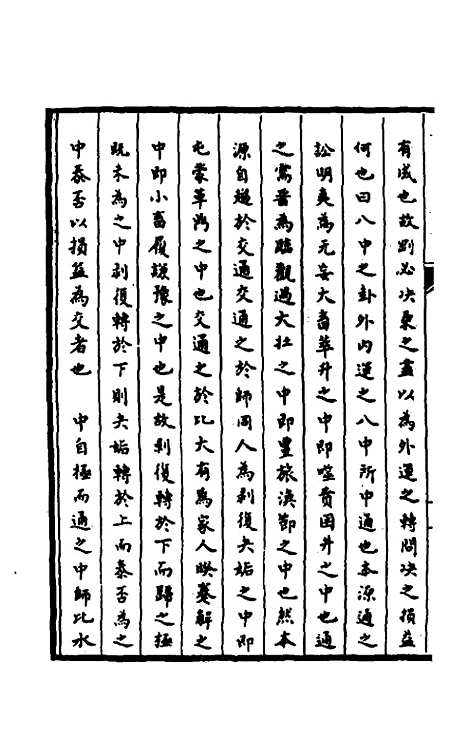 有成也故剥必决夬之盡以為外運之轉問决之損益
何也曰八中之卦外内運之八中所中通也本源通之
訟明夷為无妄大畜萃升之中即噬賁困井之中也通
之需晉為臨觀遯大壯之中即豐旅渙節之中也然本
源自趨於交通交通之於師同人為剥復夬姤之中即
屯蒙革鼎之中也交通之於比大有為家人睽蹇解之
中即小畜履謙豫之中也是故剥復轉於下而歸之極
既未為之中剥復轉於下則夬姤轉於上而泰否為之
中泰否以損益為交者也　中自極而通之中師比水